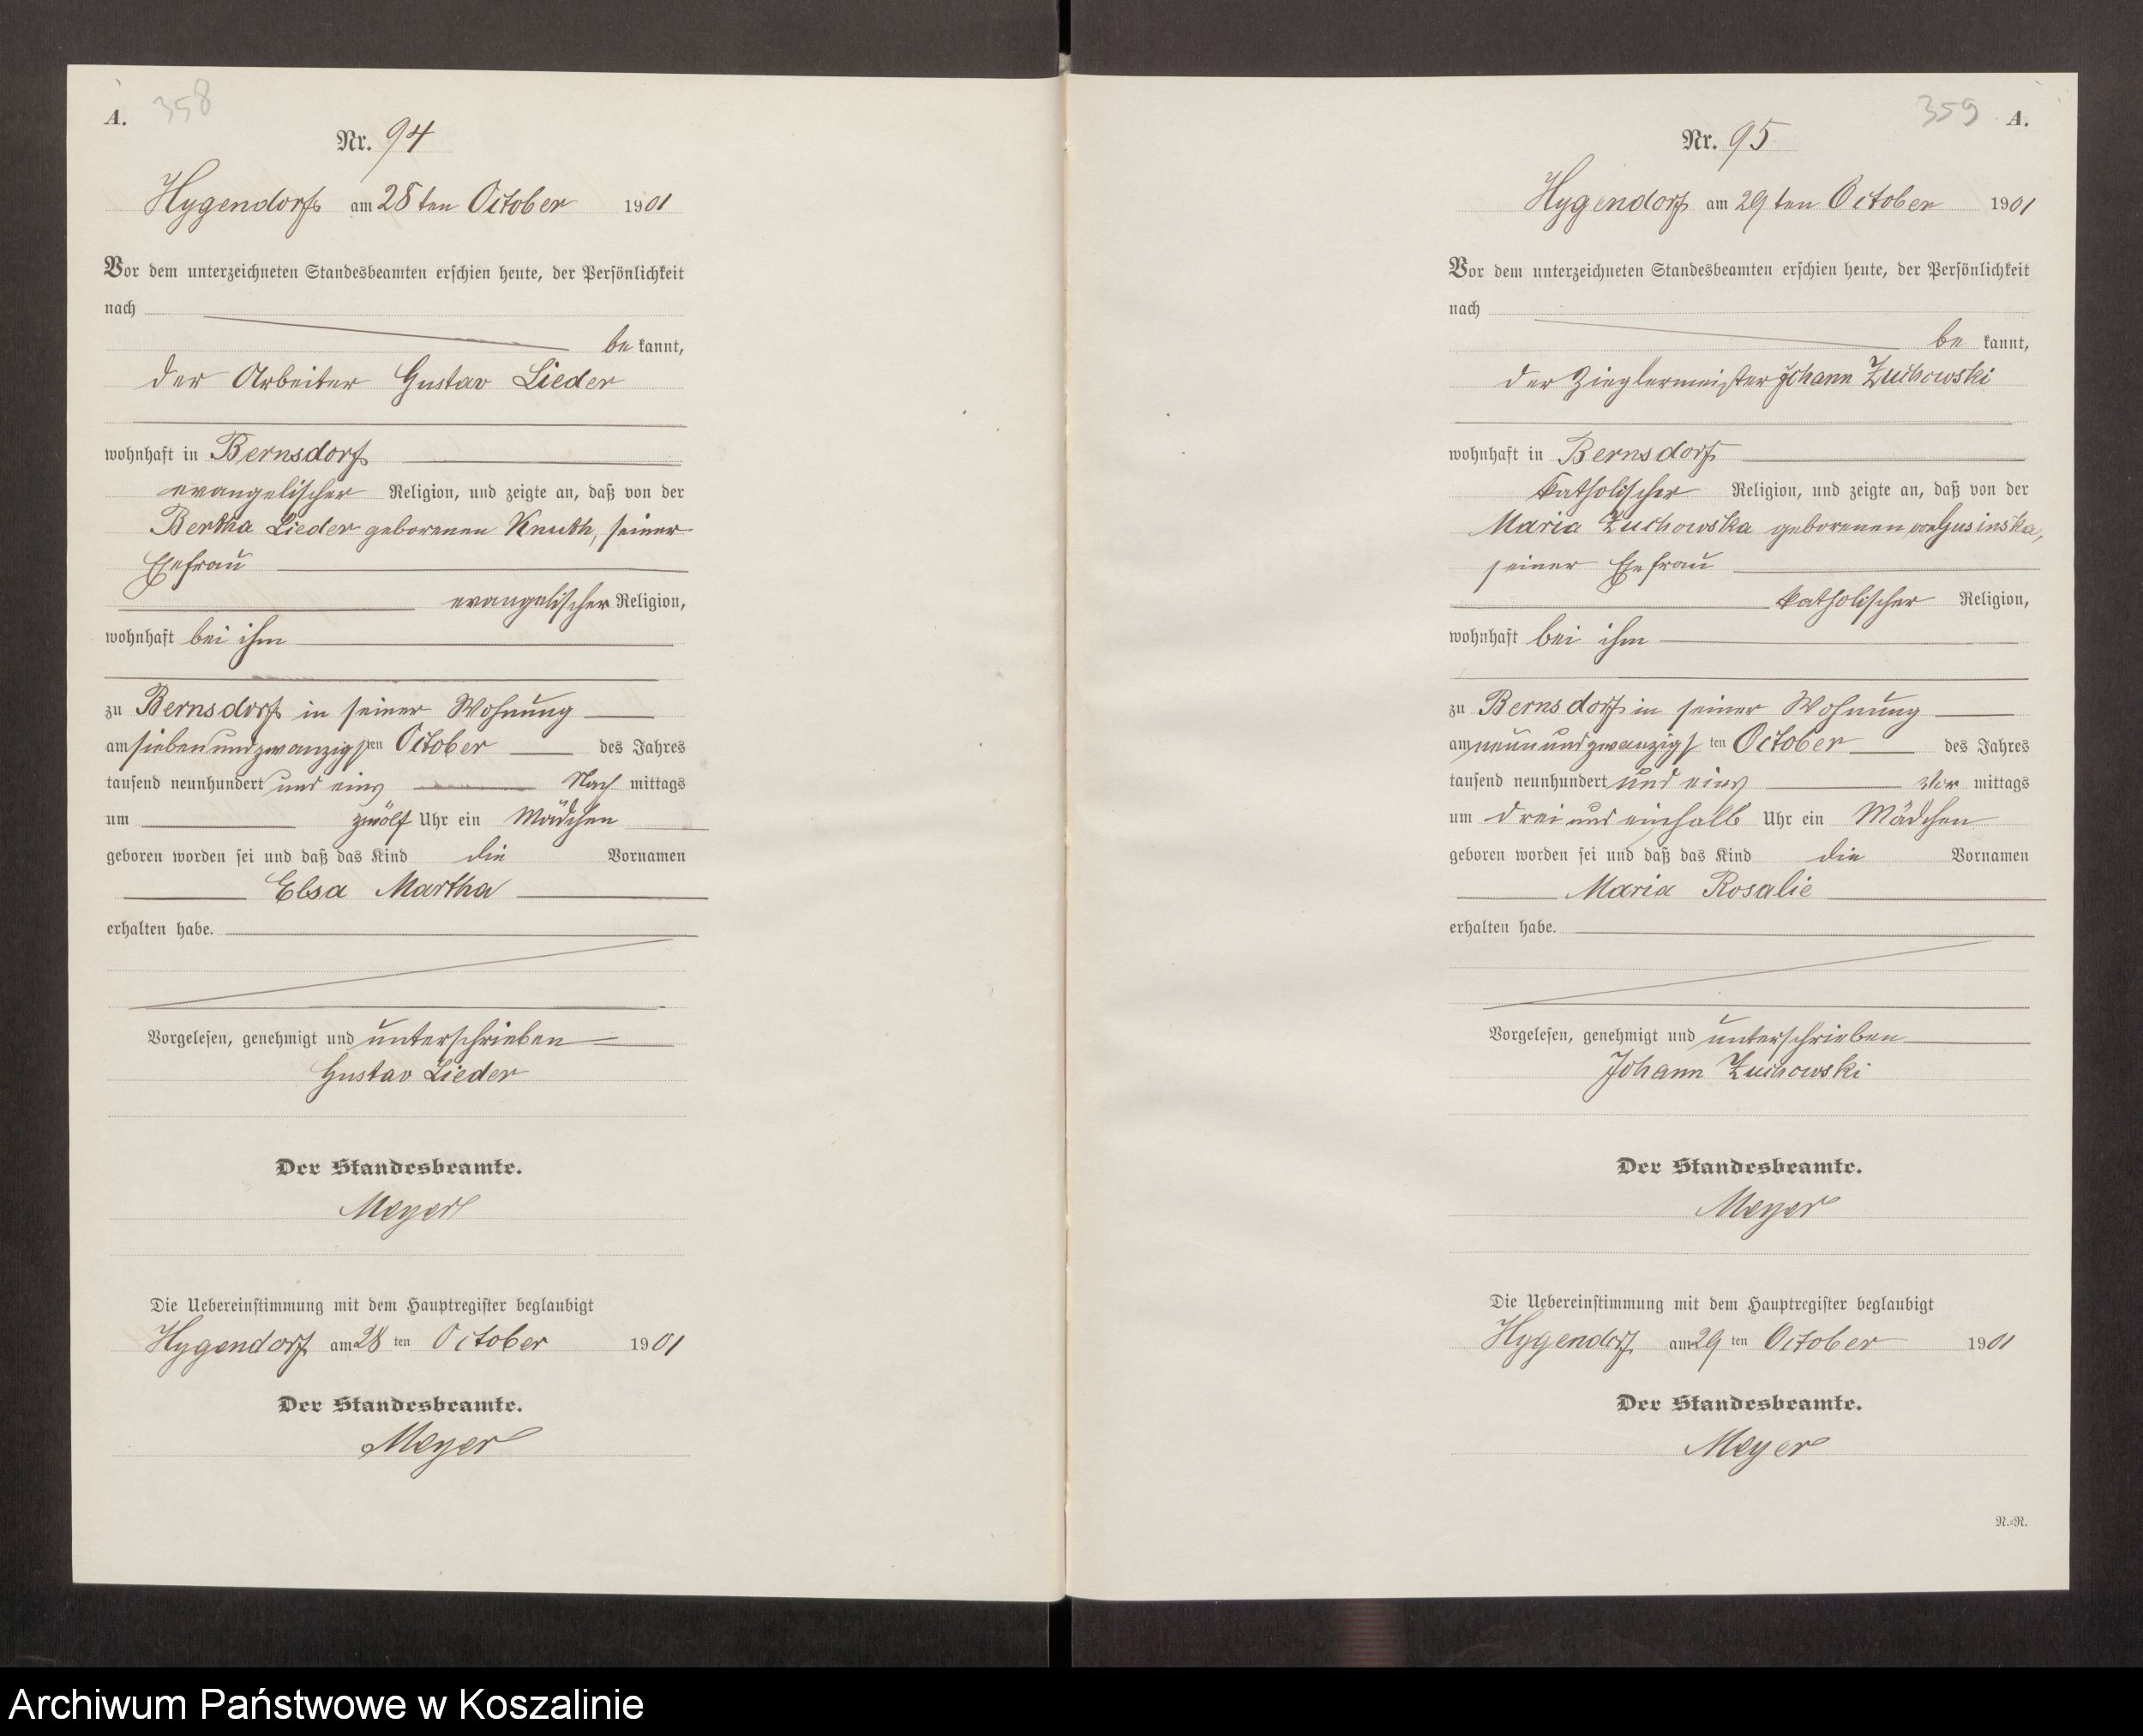 A. 358
Nr. 94
Hygendorf am 28ten October 1901
Vor dem unterzeichneten Standesbeamten erschien heute, der Persönlichkeit
nach
be kannt,
der Arbeiter Gustav Lieder
wohnhaft in Bernsdorf
evangelischer Religion, und zeigte an, daß von der
Bertha Lieder geborenen Knuth, seiner
Ehefrau
evangelischer Religion,
wohnhaft bei ihm
zu Bernsdorf in seiner Wohnung
am siebenundzwanzigsten October des Jahres
tausend neunhundert und eins Nach mittags
um zwölf Uhr ein Mädchen
geboren worden sei und daß das Kind die Vornamen
Elsa Martha
erhalten habe.
Vorgelesen, genehmigt und unterschrieben
Gustav Lieder
Der Standesbeamte.
Meyer
Die Uebereinstimmung mit dem Hauptregister beglaubigt
Hygendorf am 28 ten October 1901
Der Standesbeamte.
Meyer
359 A.
Nr. 95
Hygendorf am 29ten October 1901
Vor dem unterzeichneten Standesbeamten erschien heute, der Persönlichkeit
nach
be kannt,
der Zieglermeister Johann Zuchowski
wohnhaft in Bernsdorf
katholischer Religion, und zeigte an, daß von der
Maria Zuchowska geborenen
seiner Ehefrau
katholischer Religion,
wohnhaft bei ihm
zu Bernsdorf in seiner Wohnung
am neunundzwanzigs ten October des Jahres
tausend neunhundert und eins Vor mittags
um drei und einhalb Uhr ein Mädchen
geboren worden sei und daß das Kind die Vornamen
Maria Rosalie
erhalten habe.
Vorgelesen, genehmigt und unterschrieben
Johann Zuchowski
Der Standesbeamte.
Meyer
Die Uebereinstimmung mit dem Hauptregister beglaubigt
Hygendorf am 29 ten October 1901
Der Standesbeamte.
Meyer
N.-R.
Archiwum Państwowe w Koszalinie